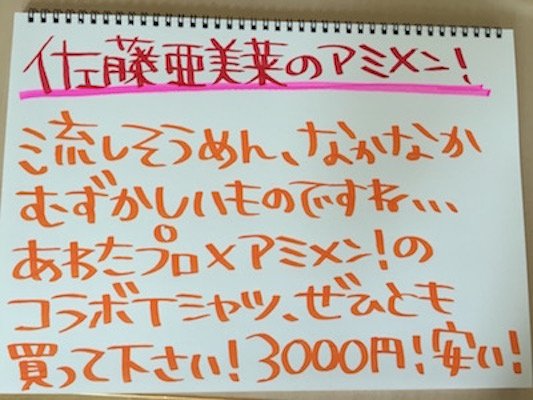 佐藤亜美菜のアミメン!
流しそうめん、なかなか
むずかしいものですね...
あわたプロ×アミメン!の
コラボTシャツ、ぜひとも
買って下さい!3000円!安い!